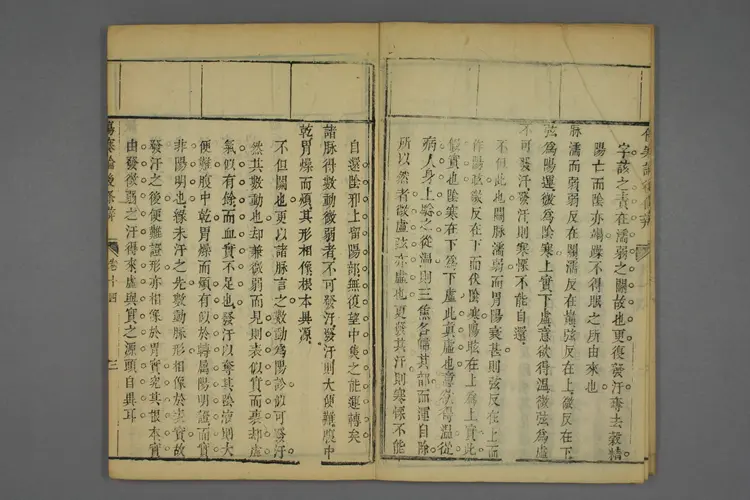 字訣之責在濡弱之關故也更復發汗奪去穀精
陽亡而陰亦竭躁不得眠之所由來也
脉濡而弱弱反在關濡反在巔弦反在上微反在下
弦為陽運微為陰寒上實下虛意欲得溫微弦為虛
不可發汗發汗則寒慄不能自還
不但此也關脉濡弱而陽實甚則弦反在上而
作陽弦微反在下而伏陰寒陽弦在上為上實此
假實也陰寒在下為下虛此真虛也意欲得溫從
病人身上驗之從溫則三焦各歸其部而運自除
所以然者微虛弦亦虛也更發其汗則寒慄不能
自還陰邪上留陽部無復望中焦之能運轉矣
諸脉得數動微弱者不可發汗發汗則大便難腹中
乾胃燥而煩其形相像根本異源
不但關也更以諸脉言之數動為陽診似可發汗
然其數動也却兼微弱而見則表似實而裏却虛
氣似有餘而血實不足也發汗以奪其陰液則大
便難腹中乾胃燥而煩有似於轉属陽明證而實
非陽明也緣未汗之先數動脉形相像於表實故
發汗之後便難證形亦相像於胃實究其根本實
由發微弱之汗得來虛與實之源頭自異耳
傷寒論後條辨
卷十四
三